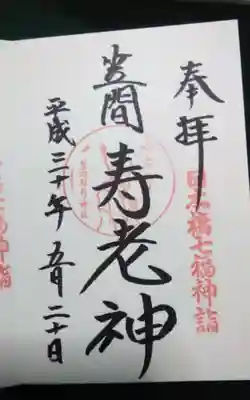 奉拝
日本橋七福神詣
笠間
寿老神
平成三十年五月二十日